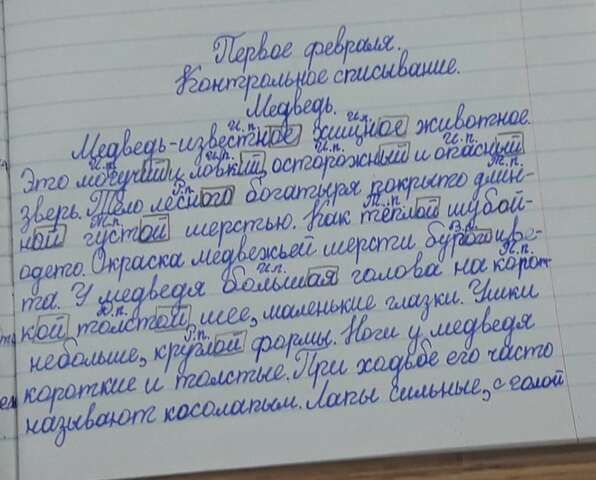 Первое февраля.
Контрольное списывание.
Медведь.
И.п. И.п.
Медведь-известное хищное животное.
И.п. И.п. И.п. И.п.
Это могучий и ловкий, осторожный и опасный
Р.п. Т.п.
зверь. Тело лесного богатыря покрыто длин-
Т.п. Т.п.
ной густой шерстью. Как тёплой шубой-
Р.п.
одето. Окраска медвежьей шерсти бурого цве-
И.п. П.п.
та. У медведя большая голова на корот-
П.п.
кой толстой шее, маленькие глазки. Ушки
Р.п.
небольшие, круглой формы. Ноги у медведя
короткие и толстые. При ходьбе его часто
называют косолапым. Лапы сильные, с голой